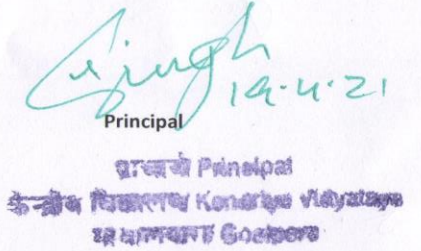 Singh 19.4.21
Principal
प्राचार्य Principal
केन्द्रीय विद्यालय Kendriya Vidyalaya
Goalpara